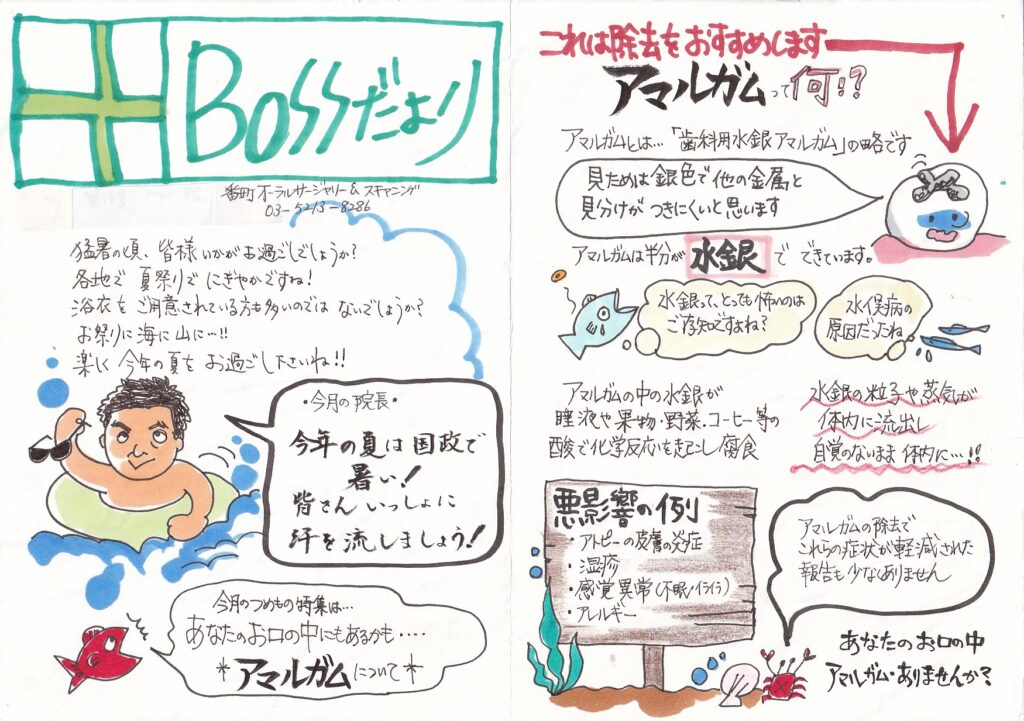 BOSSだより
番町オーラルサージャリー&スキャニング
03-5213-8286
猛暑の頃、皆様いかがお過ごしでしょうか?
各地で夏祭りでにぎやかですね!
浴衣をご用意されている方も多いのではないでしょうか?
お祭りに海に山に…!!
楽しく今年の夏をお過ごしたいね!!
・今月の院長・
今年の夏は国政で
暑い!
皆さんいっしょに
汗を流しましょう!
今月のつめもの特集は…
あなたのお口の中にもあるかも・・・・
*アマルガムについて*
これは除去をおすすめします
アマルガムって何!?
アマルガムとは…「歯科用水銀アマルガム」の略です
見ためは銀色で他の金属と
見分けがつきにくいと思います
アマルガムは半分が水銀でできています。
水銀って、とっても怖いのは
ご存知ですよね?
水俣病の
原因だったね
アマルガムの中の水銀が
唾液や果物・野菜・コーヒー等の
酸で化学反応を起こし腐食
水銀の粒子や蒸気が
体内に流出し
自覚のないまま体内に…!!
悪影響の例
・アトピーの皮膚の炎症
・湿疹
・感覚異常(不眠・イライラ)
・アレルギー
アマルガムの除去で
これらの症状が軽減された
報告も少なくありません
あなたのお口の中
アマルガム・ありませんか?